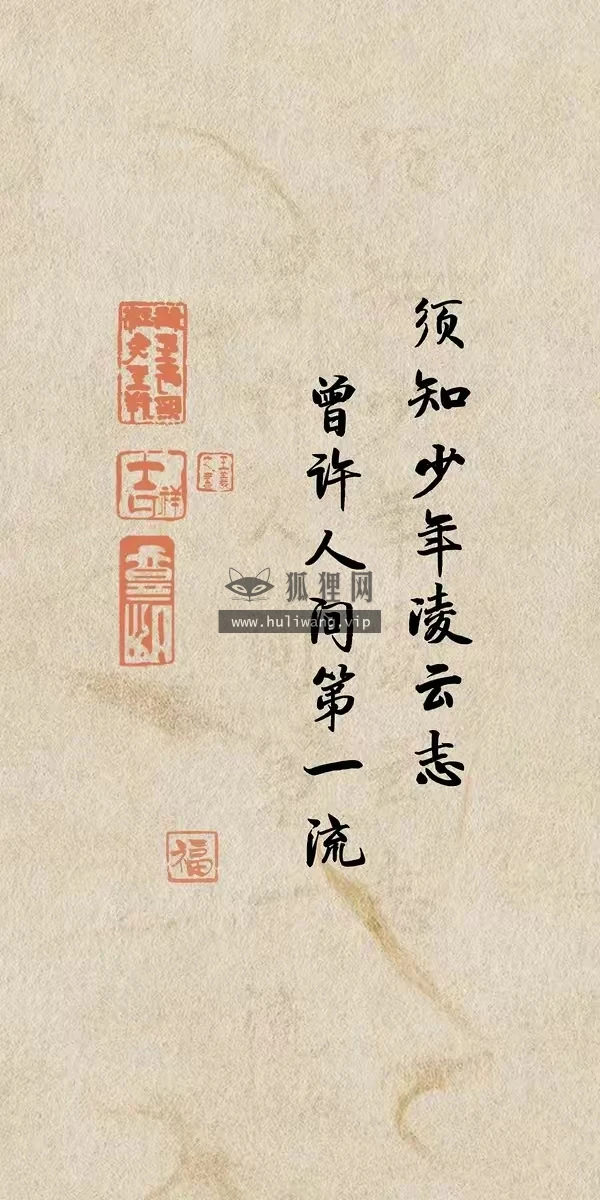 须知少年凌云志
曾许人间第一流
狐狸网
www.huliwang.vip
吉祥
福